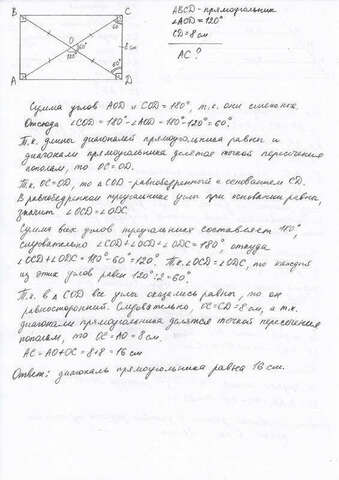 B C
60°
O 60°
120°
8 см
60°
A D
ABCD - прямоугольник
∠AOD = 120°
CD = 8 см
AC ?
Сумма углов AOD и COD = 180°, т.к. они смежные.
Отсюда ∠COD = 180° - ∠AOD = 180° - 120° = 60°.
Т.к. длины диагоналей прямоугольника равны и
диагонали прямоугольника делятся точкой пересечения
пополам, то OC = OD.
Т.к. OC = OD, то △COD - равнобедренный с основанием CD.
В равнобедренном треугольнике углы при основании равны,
значит ∠OCD = ∠ODC.
Сумма всех углов треугольника составляет 180°,
следовательно ∠COD + ∠OCD + ∠ODC = 180°, откуда
∠OCD + ∠ODC = 180° - 60° = 120°. Т.к. ∠OCD = ∠ODC, то каждый
из этих углов равен 120° : 2 = 60°.
Т.к. в △COD все углы оказались равны, то он
равносторонний. Следовательно, OC = CD = 8 см, а т.к.
диагонали прямоугольника делятся точкой пересечения
пополам, то OC = AO = 8 см.
AC = AO + OC = 8 + 8 = 16 см
Ответ: диагональ прямоугольника равна 16 см.